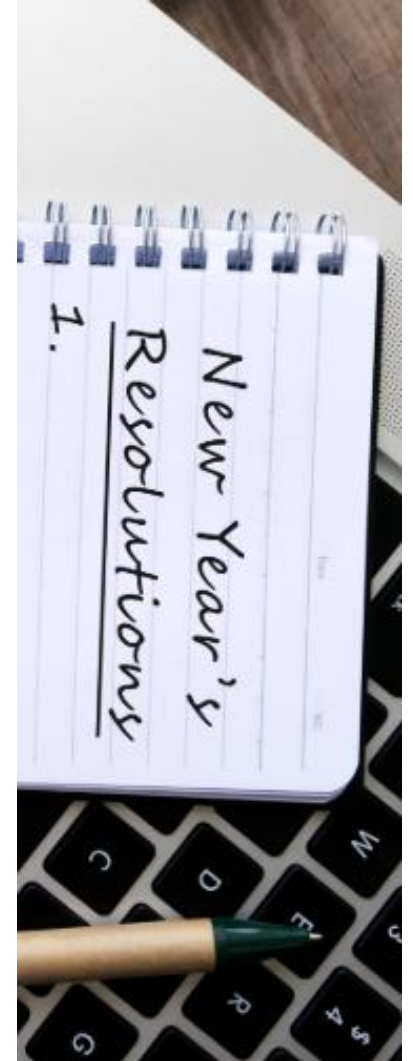 New Year's
Resolutions
1.
W
3
D
E
$ 4
C
R
G